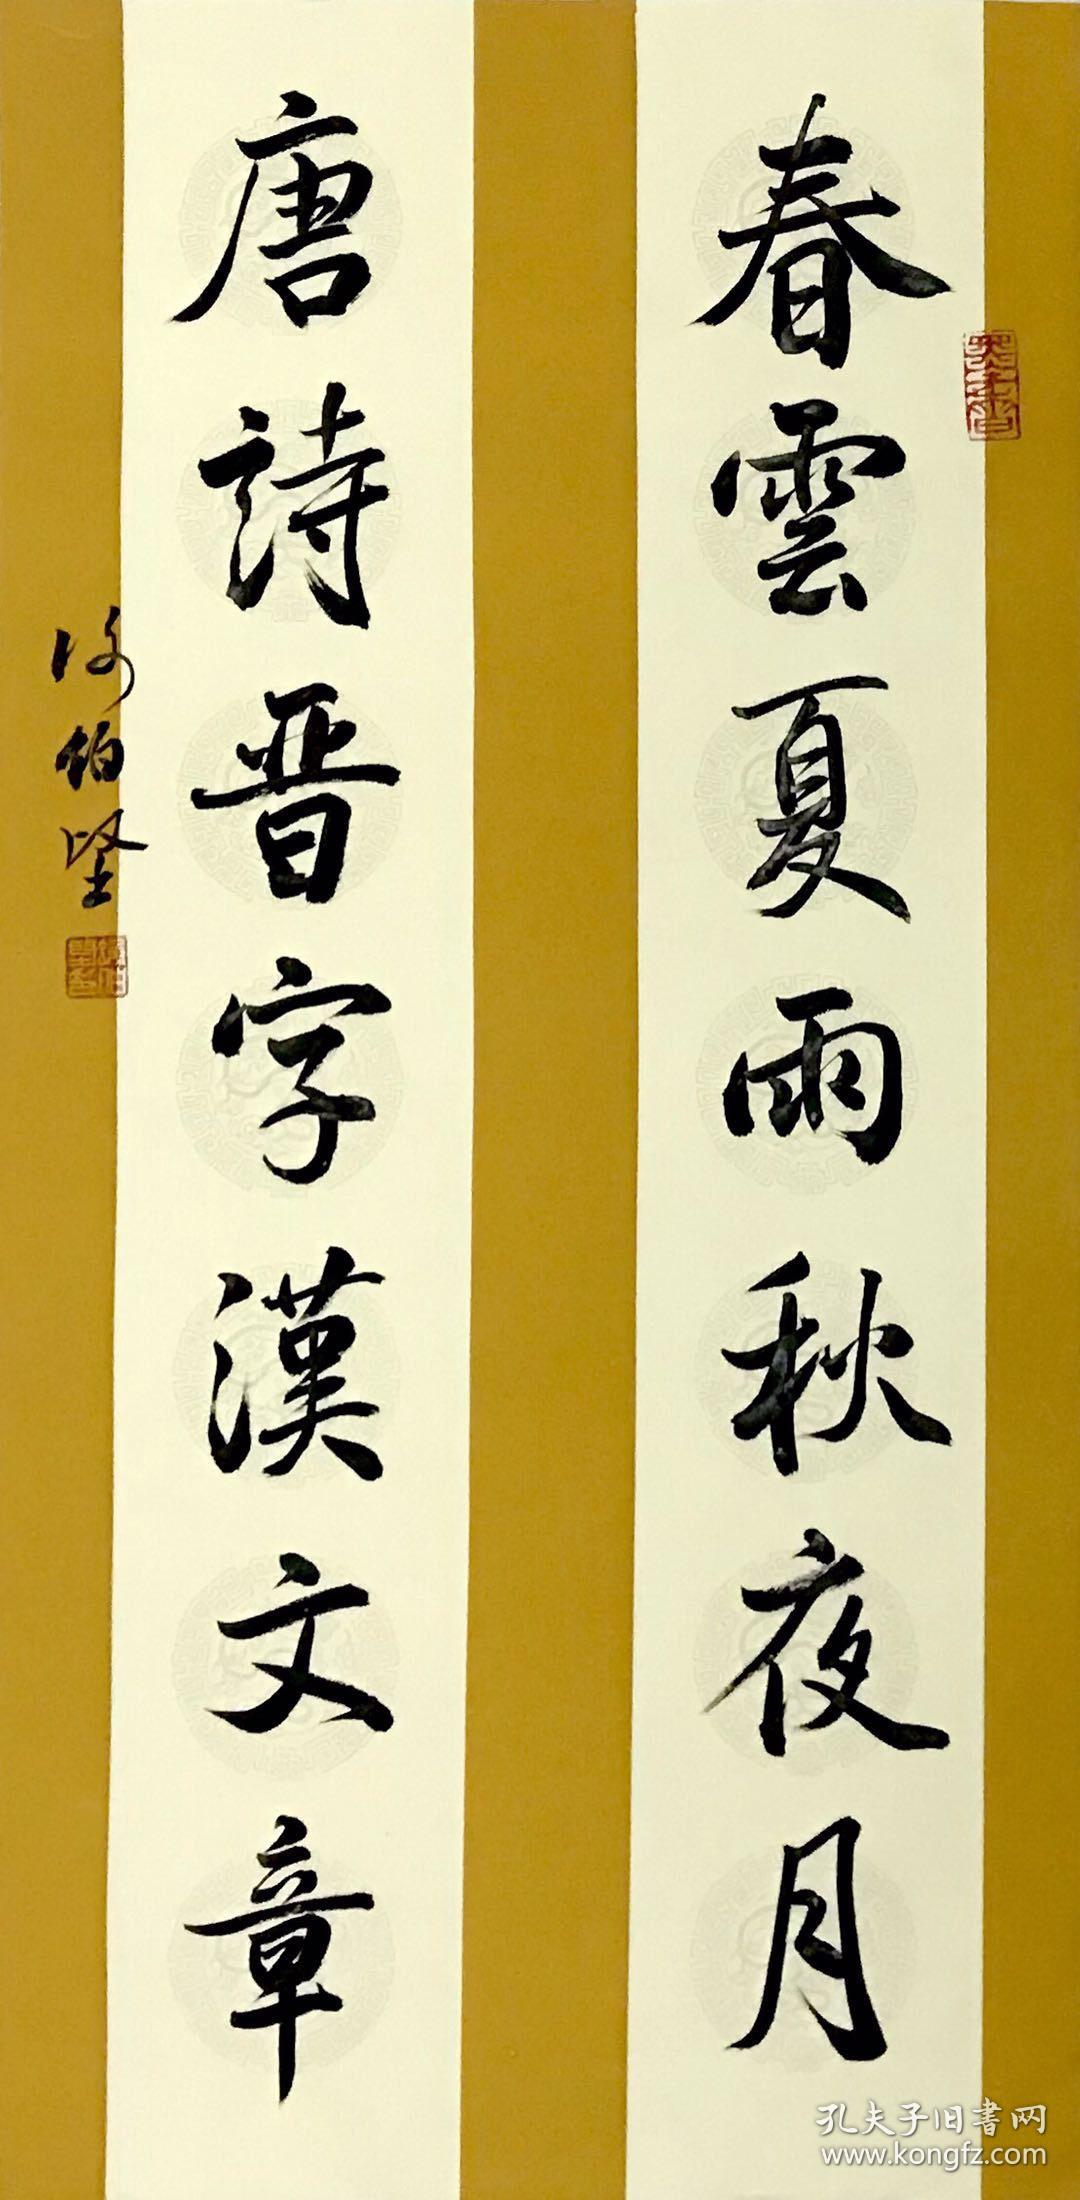 春雲夏雨秋夜月
唐詩晋字漢文章
伯堅
孔夫子旧書网
www.kongfz.com